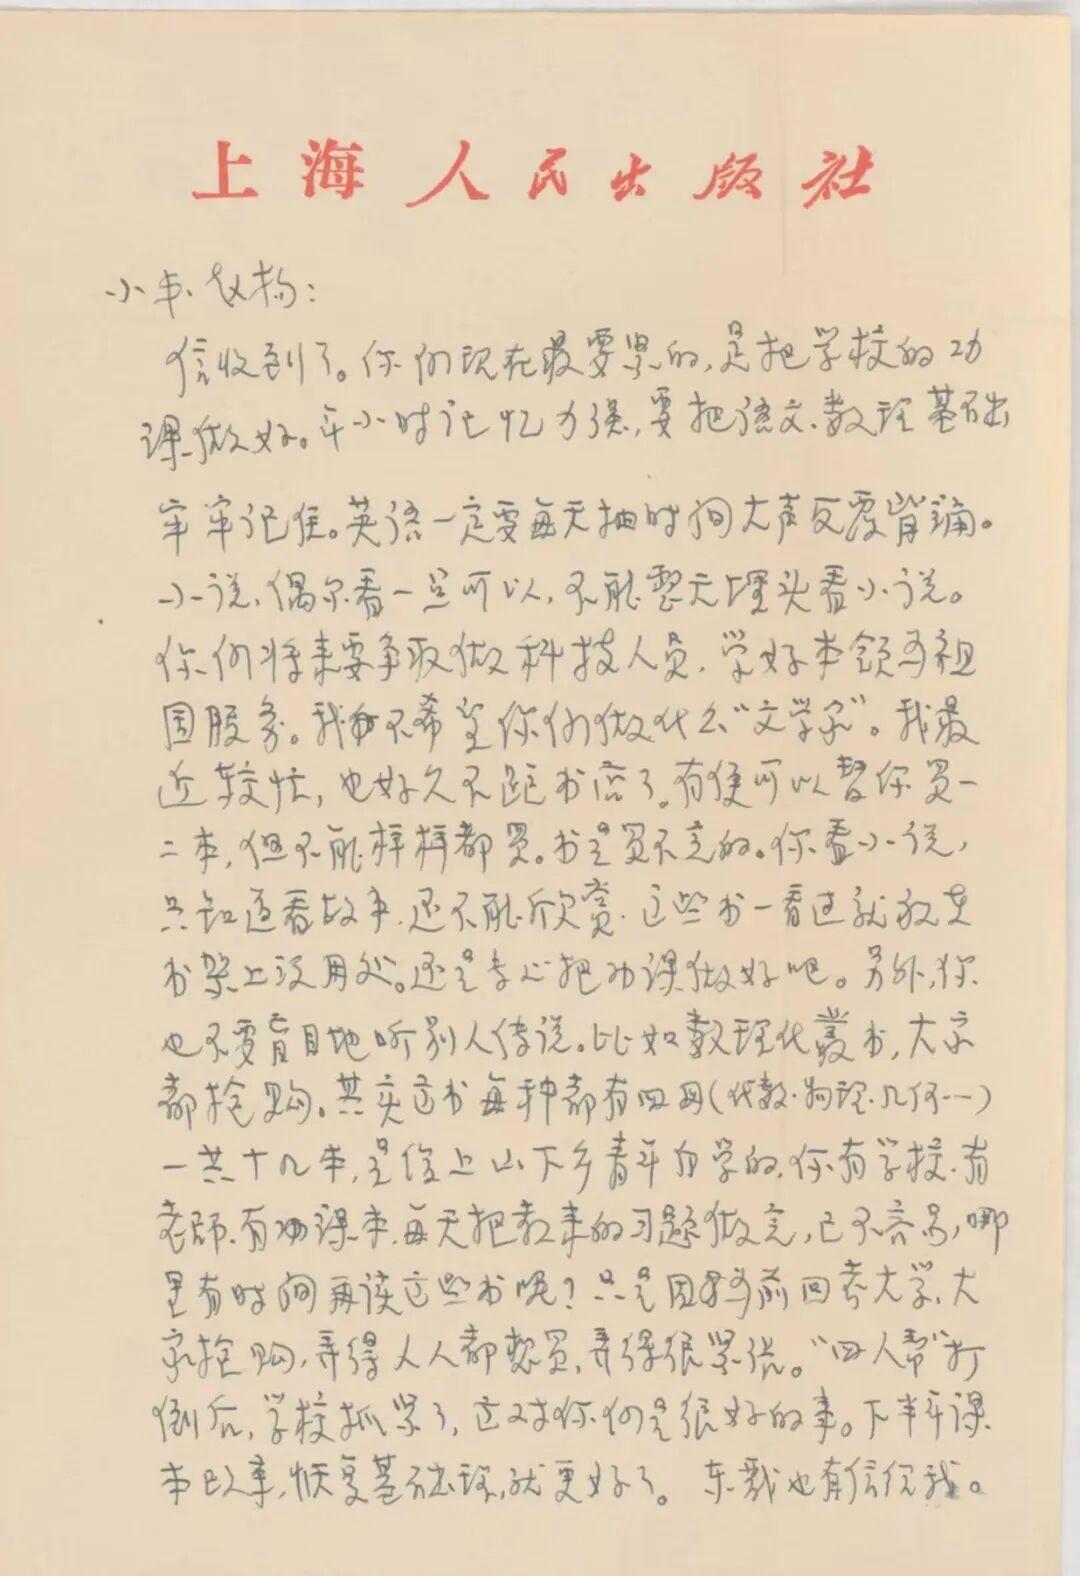 上海人民出版社
小丰、仪扬：
信收到了。你们现在最要紧的，是把学校的功
课做好。年小时记忆力强，要把语文、数理基础
牢牢记住。英语一定要每天抽时间大声反覆背诵。
小说，偶尔看一点可以，不能整天埋头看小说。
你们将来要争取做科技人员，学好本领为祖
国服务。我不希望你们做什么“文学家”。我最
近较忙，也好久不跑书店了。有便可以替你买一
二本，但不能样样都买。书是买不完的。你看小说，
只知道看故事，还不能欣赏，这些书一看过就放在
书架上没用处。还是专心把功课做好吧。另外，你
也不要盲目地听别人传说。比如数理化丛书，大家
都抢购。其实这书每种都有四册（代数·物理·几何……）
一共十几本，是给上山下乡青年自学的，你有学校、有
老师、有课本，每天把教来的习题做完，已不容易，哪
里有时间再读这些书呢？只是因为前回考大学，大
家抢购，弄得人人都想买，弄得很紧张。“四人帮”打
倒后，学校抓紧了，这对你们是很好的事。下半年课
本改革，恢复基础理，就更好了。 东我也有信给我。